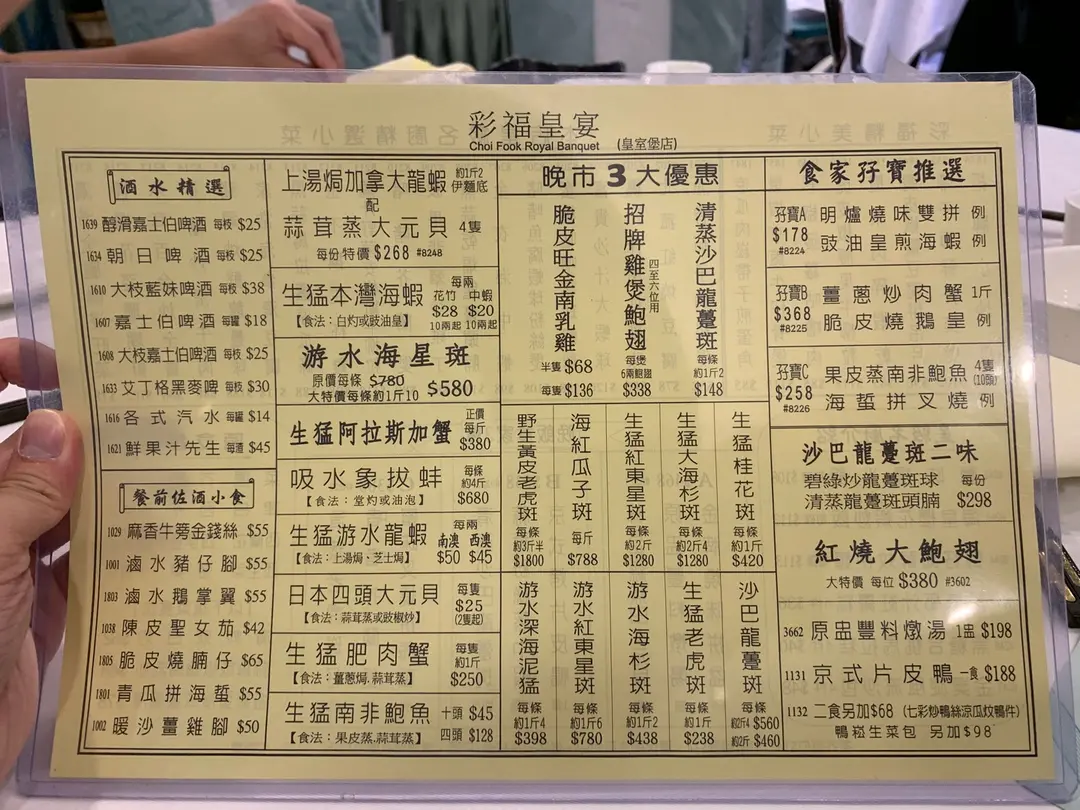 彩福皇宴
Choi Fook Royal Banquet (皇室堡店)
酒水精選
1639 醇滑嘉士伯啤酒 每枝 $25
1634 朝日啤酒 每枝 $25
1610 大枝藍妹啤酒 每枝 $38
1607 嘉士伯啤酒 每罐 $18
1608 大枝嘉士伯啤酒 每枝 $25
1633 艾丁格黑麥啤 每枝 $30
1616 各式汽水 每罐 $14
1621 鮮果汁先生 每渣 $45
餐前佐酒小食
1029 麻香牛蒡金錢絲 $55
1001 滷水豬仔腳 $55
1803 滷水鵝掌翼 $55
1038 陳皮聖女茄 $42
1805 脆皮燒腩仔 $65
1801 青瓜拼海蜇 $55
1002 暖沙薑雞腳 $50
上湯焗加拿大龍蝦 約1斤2 伊麵底
配
蒜茸蒸大元貝 4隻
每份特價 $268 #8248
生猛本灣海蝦 每兩
花竹 中蝦
$28 $20
【食法：白灼或豉油皇】 10兩起 10兩起
游水海星斑
原價每條 $780
大特價每條約1斤10 $580
生猛阿拉斯加蟹 正價 每斤 $380
吸水象拔蚌 每條 約4斤
【食法：堂灼或油泡】 $680
生猛游水龍蝦 每兩
南澳 西澳
【食法：上湯焗、芝士焗】 $50 $45
日本四頭大元貝 每隻 $25
【食法：蒜茸蒸或豉椒炒】 (2隻起)
生猛肥肉蟹 每隻 約1斤
【食法：薑蔥焗.蒜茸蒸】 $250
生猛南非鮑魚 十頭 $45
【食法：果皮蒸.蒜茸蒸】 四頭 $128
晚市3大優惠
脆皮旺金南乳雞
半隻 $68
每隻 $136
招牌雞煲鮑翅
四至六位用
每煲
6兩鮑翅
$338
清蒸沙巴龍躉斑
每條
約1斤2
$148
野生黃皮老虎斑
每條
約3斤半
$1800
海紅瓜子斑
每斤
$788
生猛紅東星斑
每條
約2斤
$1280
生猛大海杉斑
每條
約2斤4
$1280
生猛桂花斑
每條
約1斤
$420
游水深海泥猛
每條
約1斤4
$398
游水紅東星斑
每條
約1斤6
$780
游水海杉斑
每條
約1斤2
$438
生猛老虎斑
每條
約1斤
$238
沙巴龍躉斑
每條
約2斤4 $560
約2斤 $460
食家孖寶推選
孖寶A 明爐燒味雙拼 例
$178 豉油皇煎海蝦 例
#8224
孖寶B 薑蔥炒肉蟹 1斤
$368 脆皮燒鵝皇 例
#8225
孖寶C 果皮蒸南非鮑魚 4隻 (10頭)
$258 海蜇拼叉燒 例
#8226
沙巴龍躉斑二味
碧綠炒龍躉斑球 每份
清蒸龍躉斑頭腩 $298
紅燒大鮑翅
大特價 每位 $380 #3602
3662 原盅豐料燉湯 1盅 $198
1131 京式片皮鴨 一食 $188
1132 二食另加$68 (七彩炒鴨絲涼瓜炆鴨件)
鴨崧生菜包 另加$98